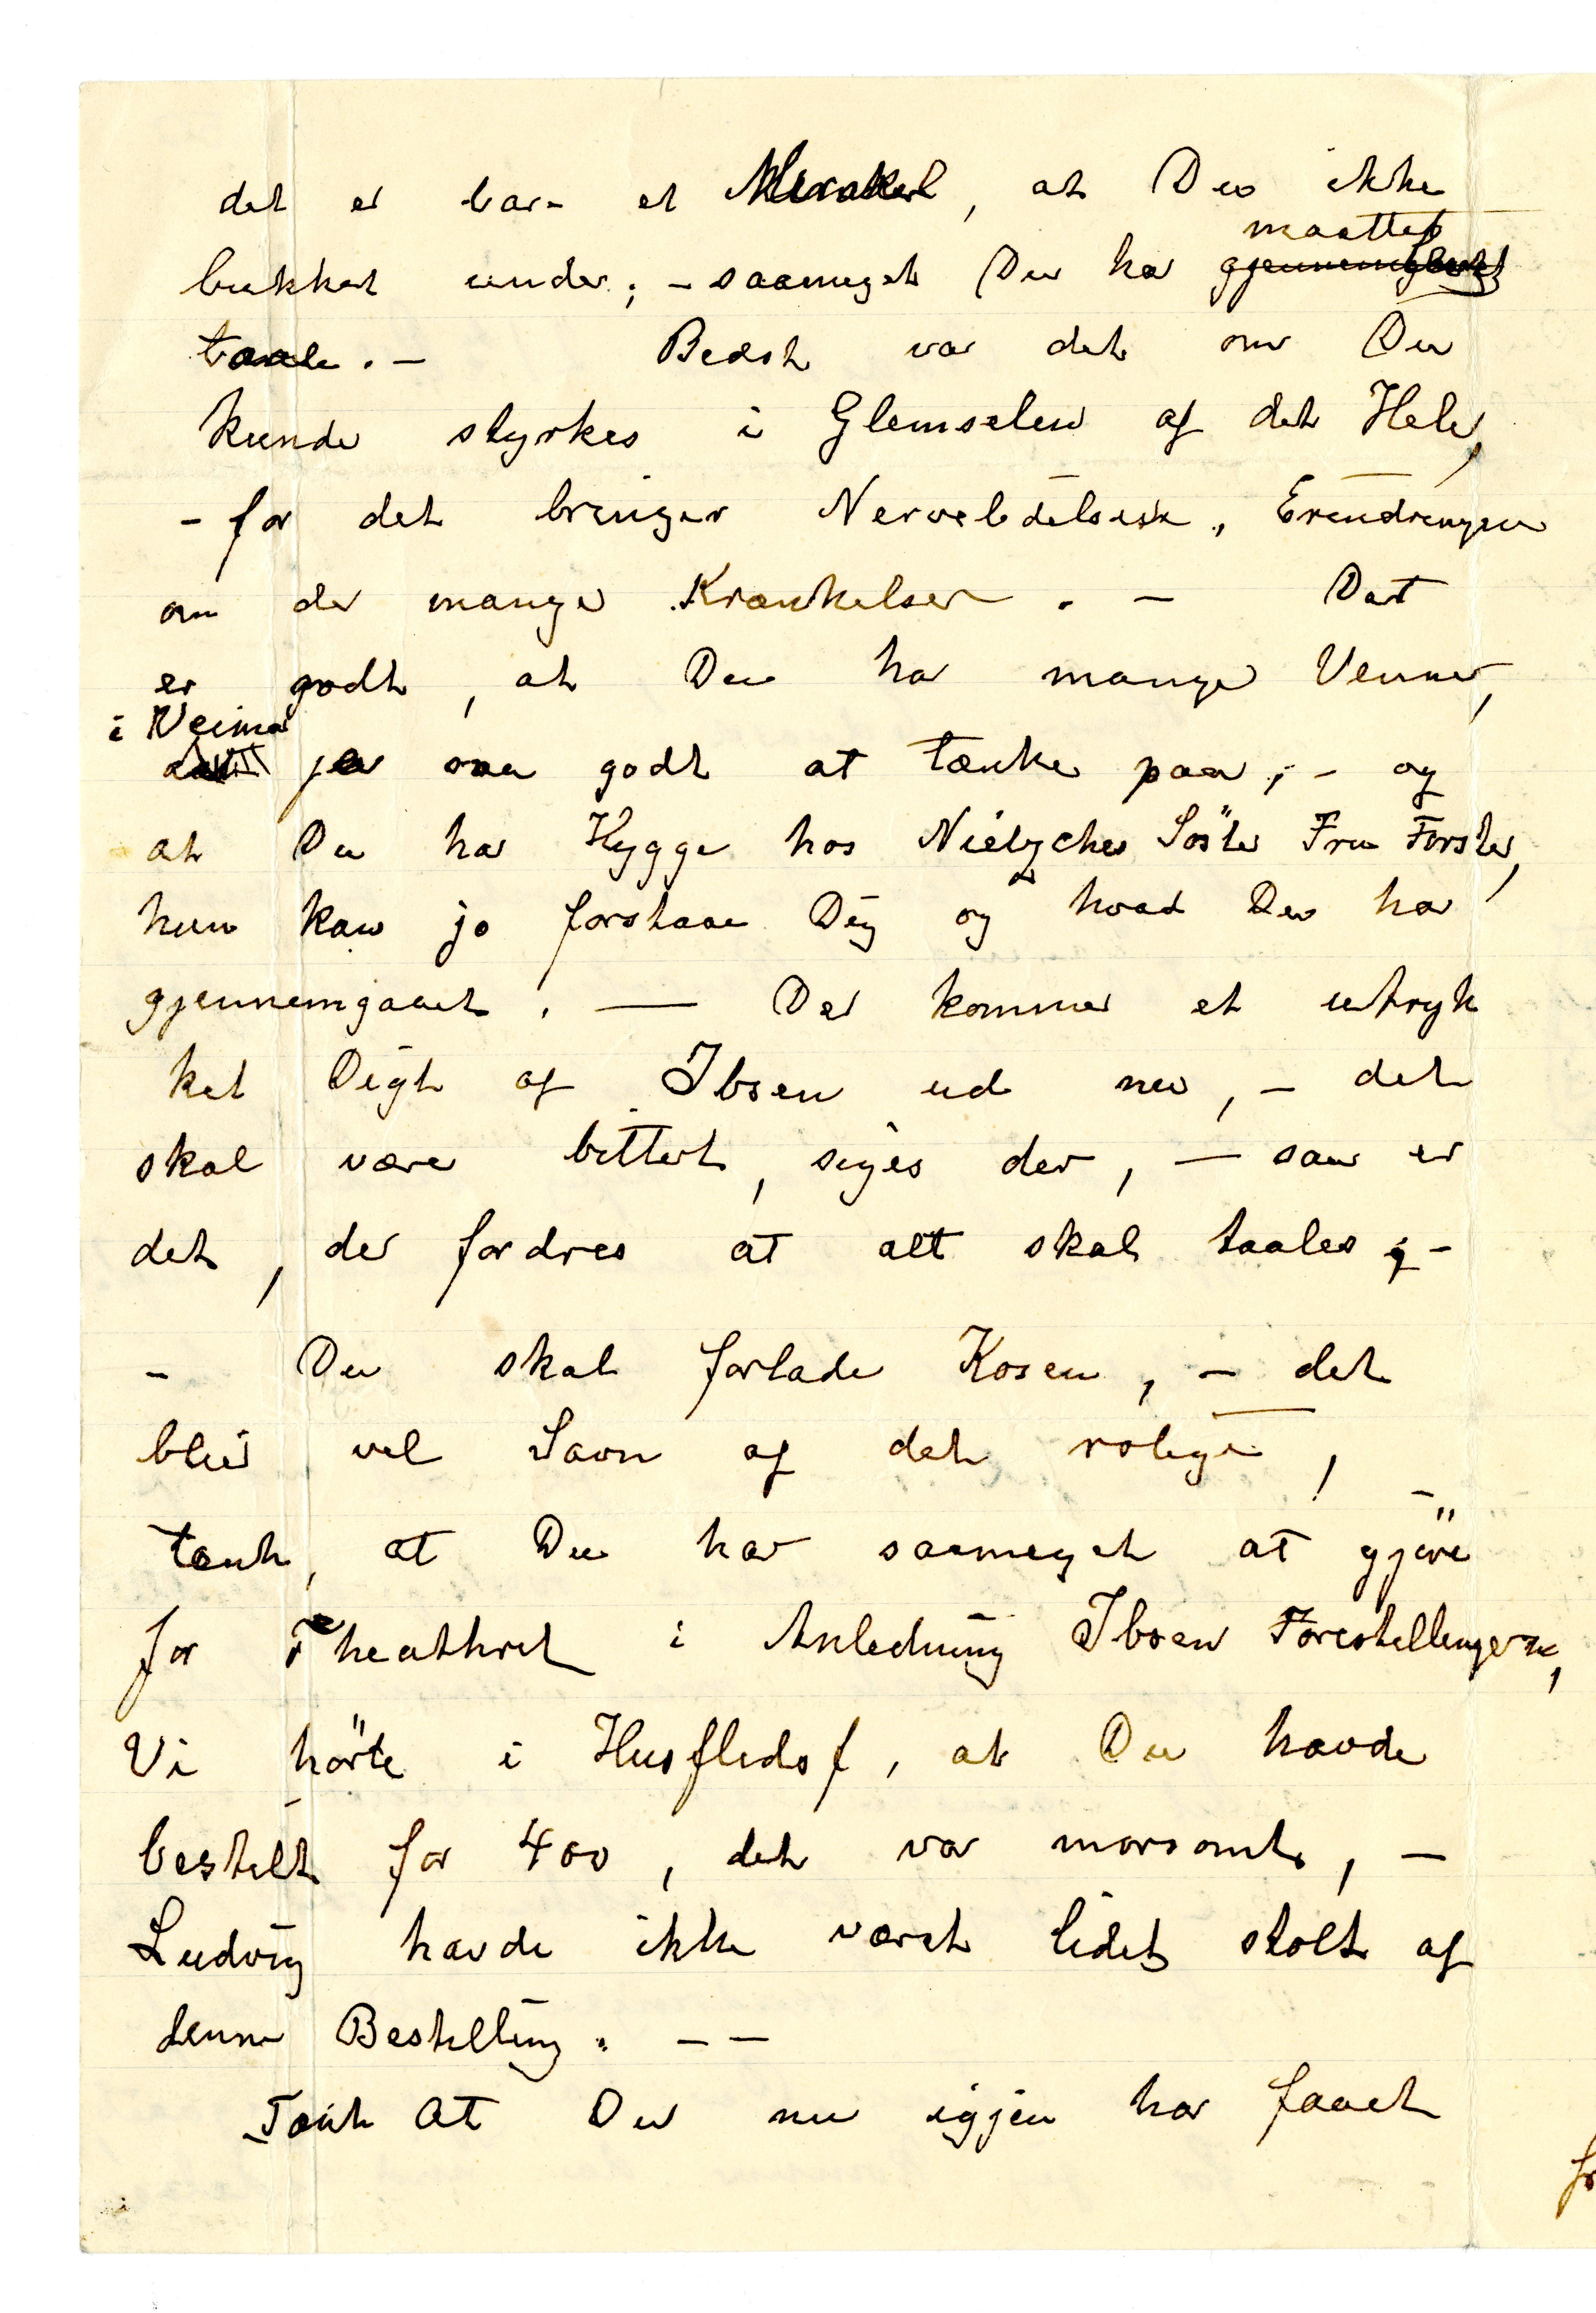 det er bare et Mirakel, at Du ikke
maattet
bukket under; – saameget Du har gjennemgaaet
taale. – Bedst var det om Du
kunde styrkes i Glemselen af det Hele,
– for det bringer Nervelidelserne, Erindringen
om de mange Krænkelser. – Det
er godt, at Du har mange Venner,
i Weimar
ja saa godt at tænke paa; – og
at Du har Hygge hos Nietzsches Söster Fru Förster,
hun kan jo forstaae Dig og hvad Du har
gjennemgaaet. — Der kommer et utryk
ket Digt af Ibsen ud nu, – det
skal være bittert, siges der, – saa er
det, der fordres at alt skal taales; –
– Du skal forlade Kosen, – det
blir vel Savn af det rolige, –
tænk, at Du har saameget at gjöre
for Theathret i Anledning Ibsen Forestillingerne,
Vi hörte i Husflidsf, at Du havde
bestilt for 400, det var morsomt, –
Ludvig havde ikke været lidet stolt af
denne Bestilling. – –
Tænk at Du nu igjen har faaet